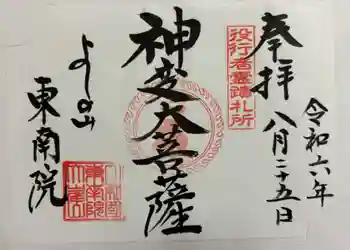 奉拝
令和六年
八月二十五日
役行者霊蹟札所
神変大菩薩
よしの山
東南院